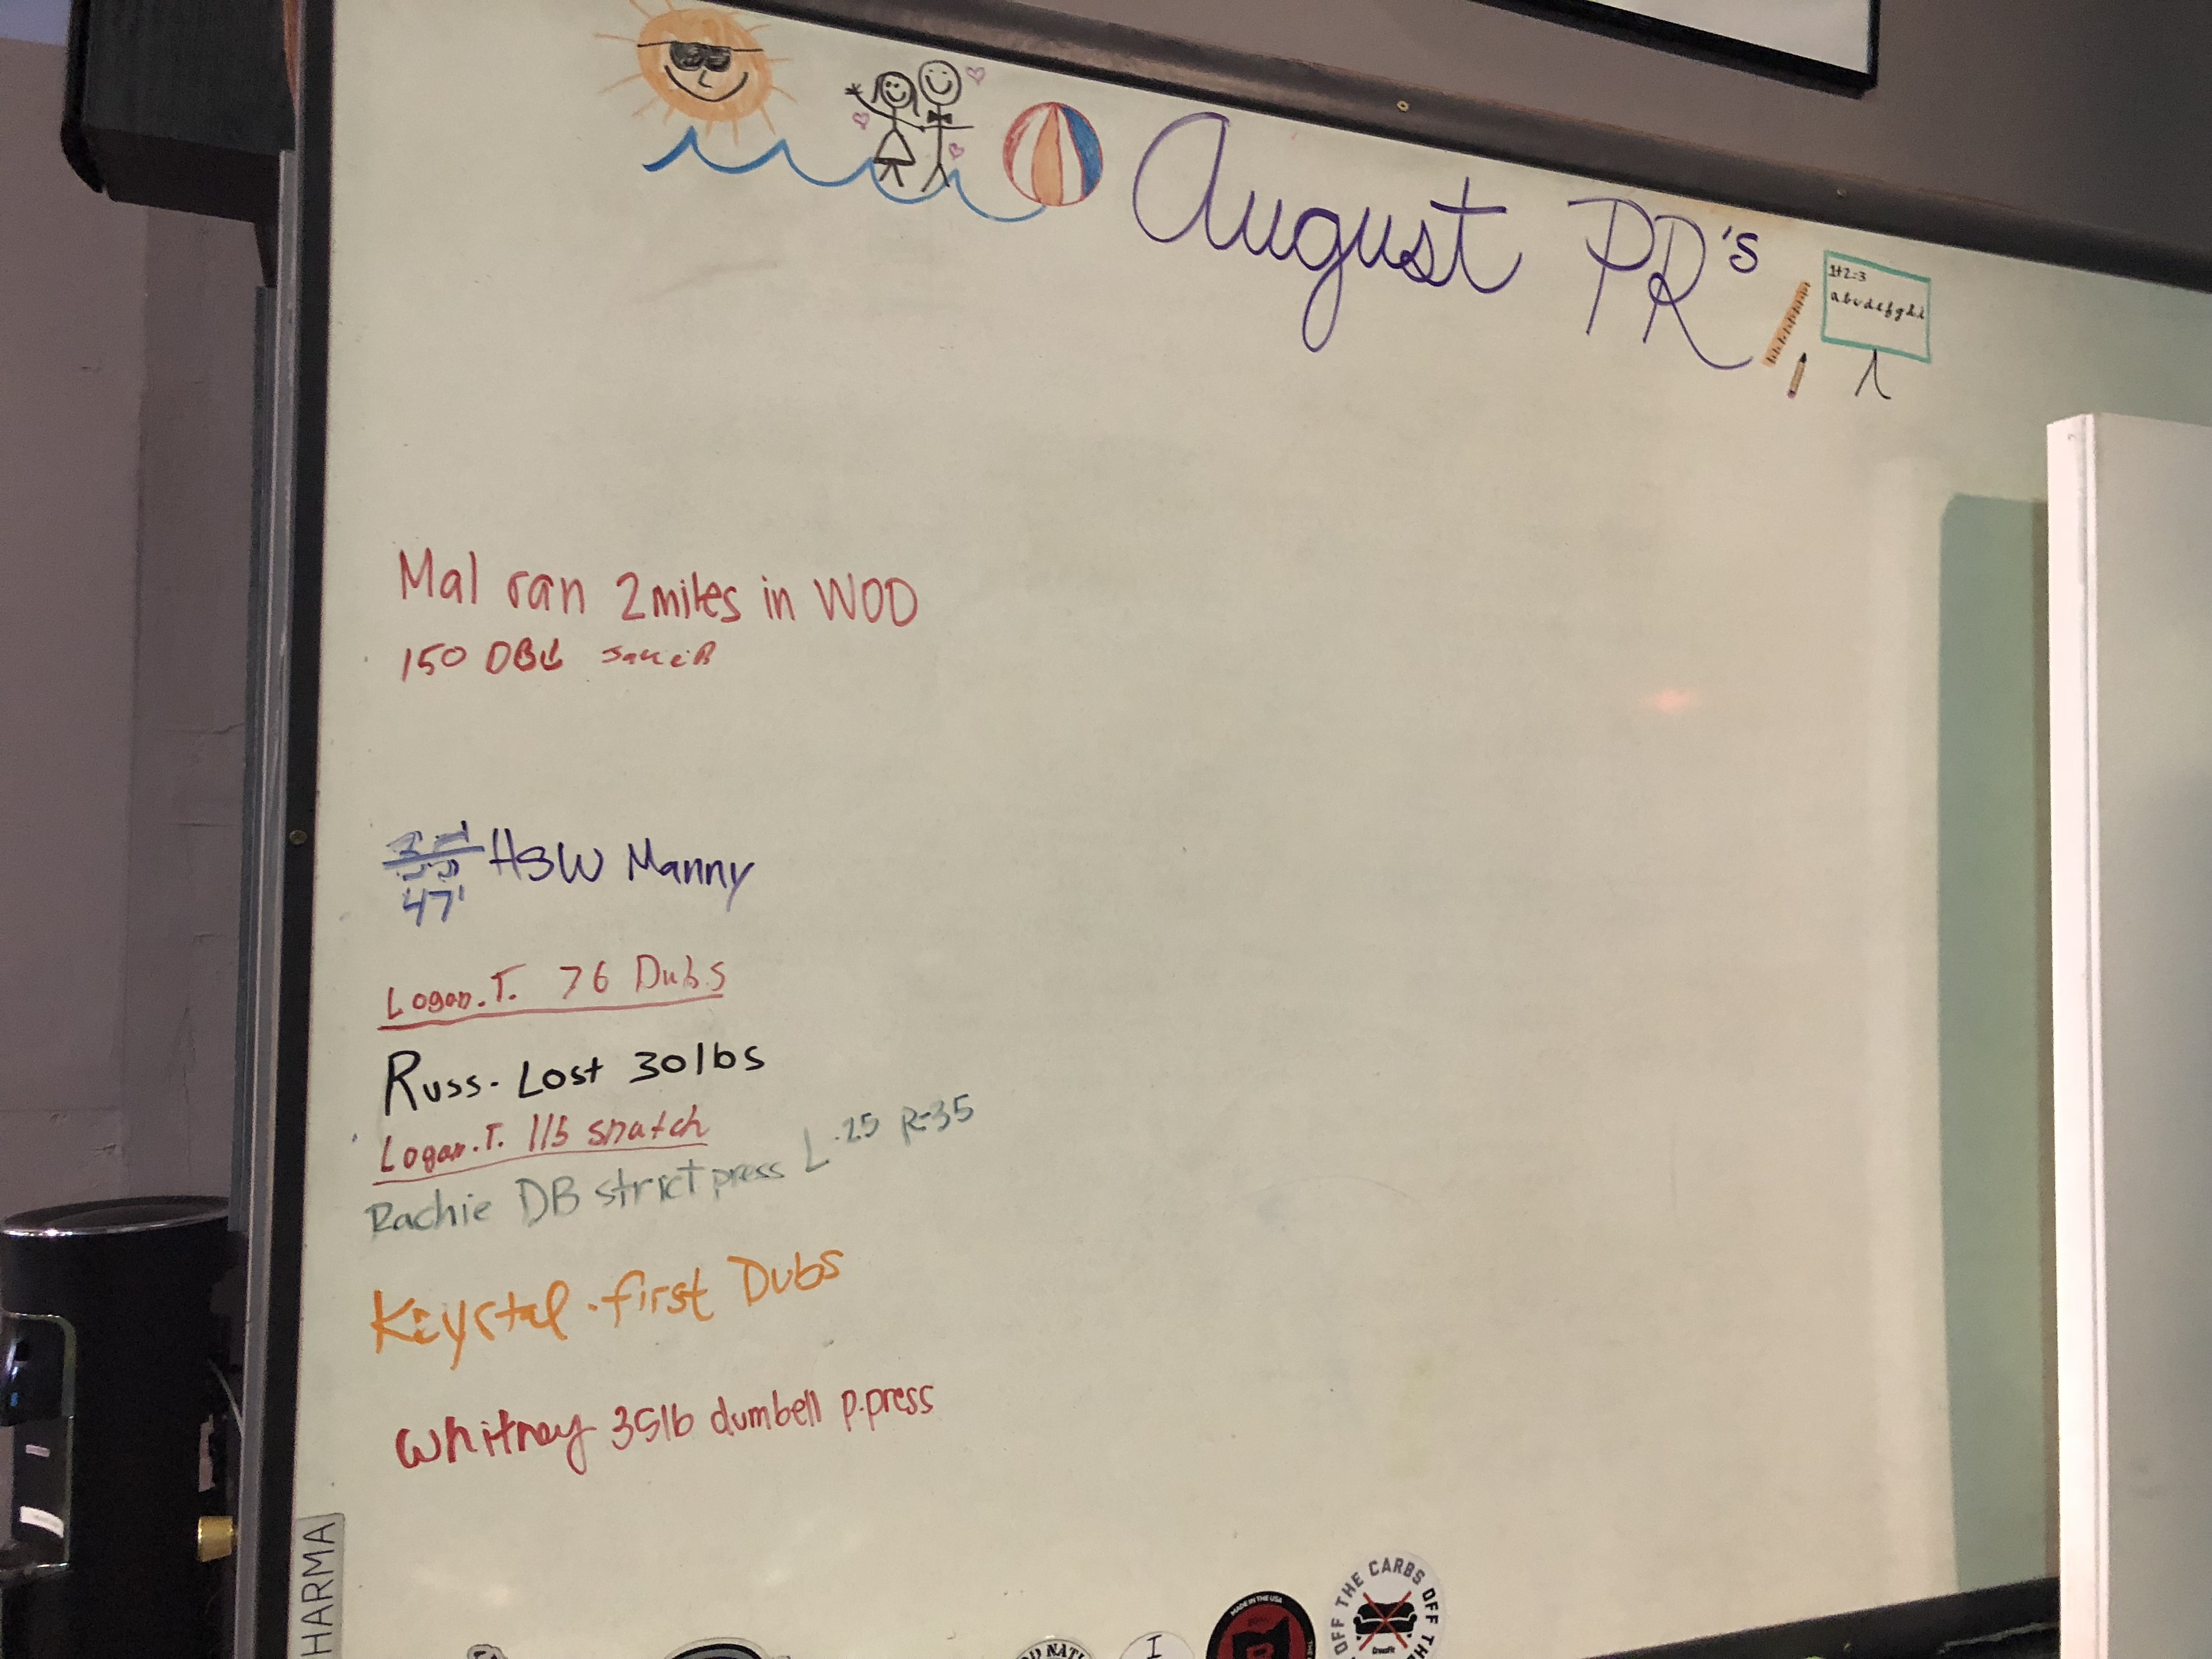 August PR's
1+2=3
abcdefghi
Mal ran 2miles in WOD
150 DBU
HSW Manny
47'
Logan.T. 76 Dubs
Russ- Lost 30lbs
Logan.T. 115 snatch
Rachie DB strict press L-25 R-35
Krystal - first Dubs
Whitney 35lb dumbell p.press
HARMA
MADE IN THE USA
I
OFF THE CARBS OFF THE
CrossFit